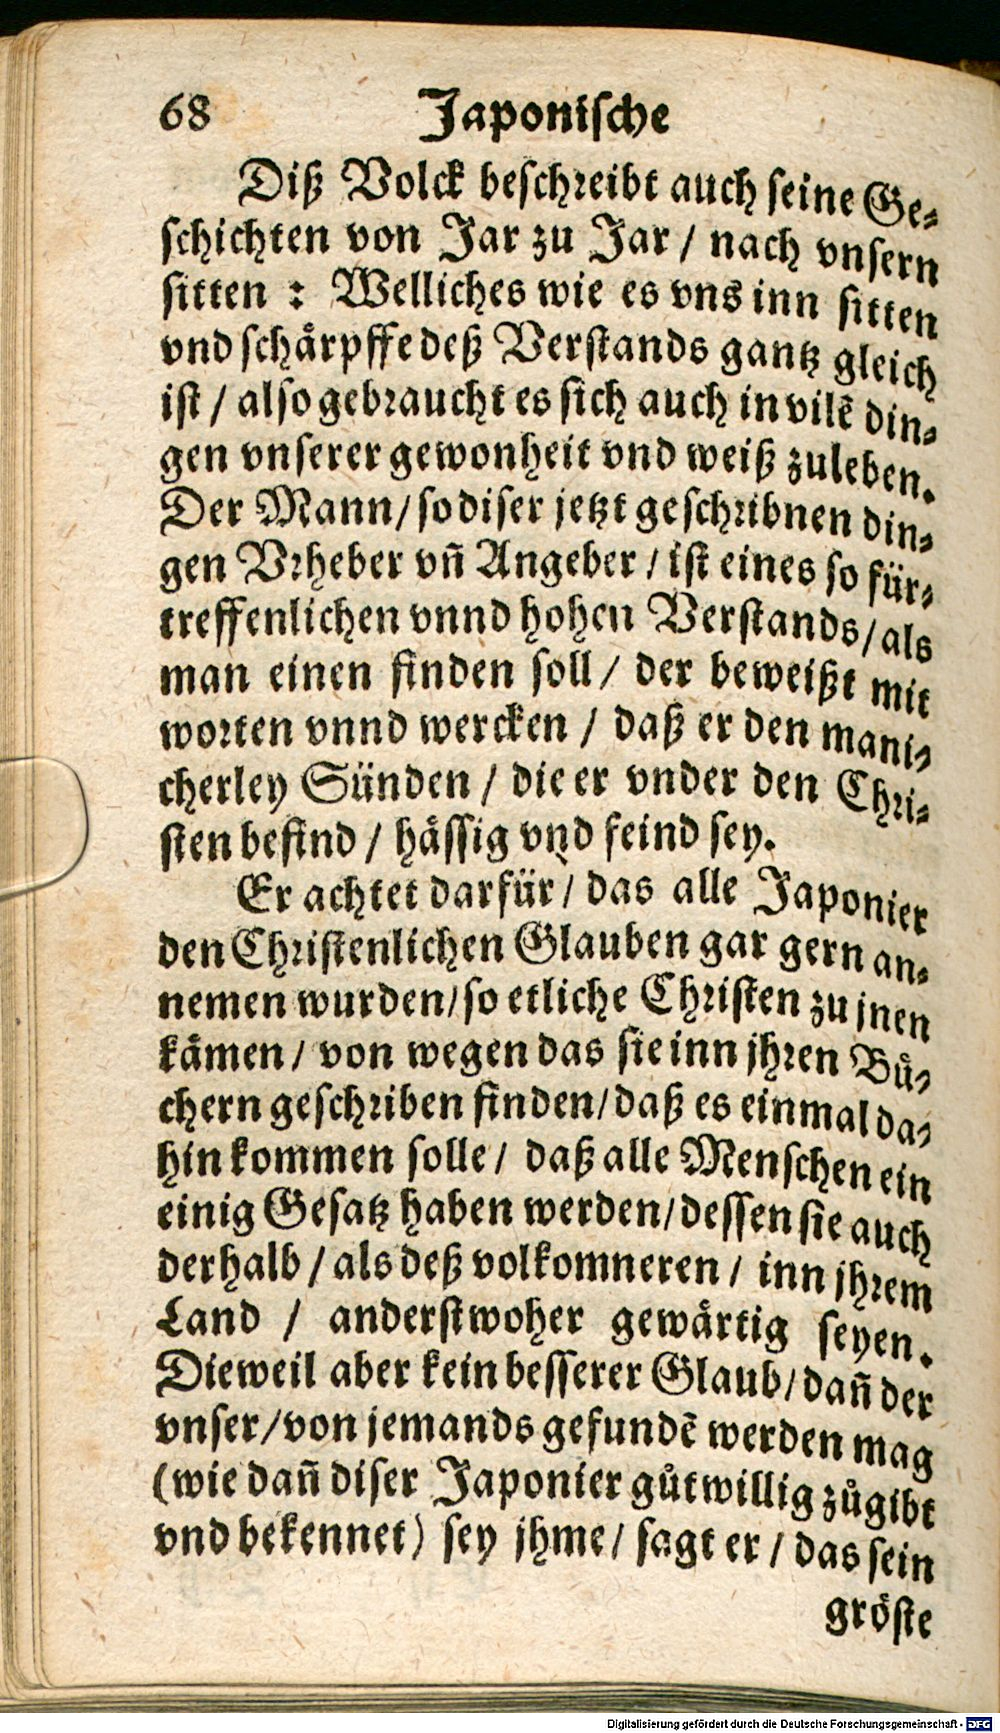 68 Japonische
Diß Volck beschreibt auch seine Ge⸗
schichten von Jar zu Jar / nach vnsern
sitten : Welliches wie es vns inn sitten
vnd schaͤrpffe deß Verstands gantz gleich
ist / also gebraucht es sich auch in vilẽ din⸗
gen vnserer gewonheit vnd weiß zuleben.
Der Mann / so diser jetzt geschribnen din⸗
gen Vrheber vñ Angeber / ist eines so für⸗
treffenlichen vnnd hohen Verstands / als
man einen finden soll / der beweißt mit
worten vnnd wercken / daß er den mani⸗
cherley Sünden / die er vnder den Chri⸗
sten befind / haͤssig vnd feind sey.
Er achtet darfür / das alle Japonier
den Christenlichen Glauben gar gern an⸗
nemen wurden / so etliche Christen zu jnen
kaͤmen / von wegen das sie inn jhren Buͤ⸗
chern geschriben finden / daß es einmal da⸗
hin kommen solle / daß alle Menschen ein
einig Gesatz haben werden / dessen sie auch
derhalb / als deß volkomneren / inn jhrem
Land / anderstwoher gewaͤrtig seyen.
Dieweil aber kein besserer Glaub / dañ der
vnser / von jemands gefundẽ werden mag
(wie dañ diser Japonier guͦtwillig zuͦgibt
vnd bekennet) sey jhme / sagt er / das sein
gröste
Digitalisierung gefördert durch die Deutsche Forschungsgemeinschaft - DFG